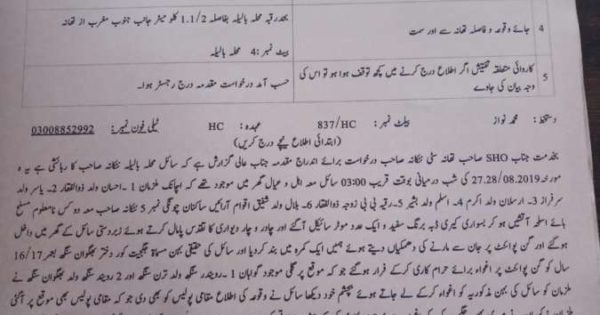 4
جائے وقوعہ و فاصلہ تھانہ سے اور سمت
بحد رقبہ محلہ بالیلہ بفاصلہ 1.1/2 کلو میٹر جانب جنوب مغرب از تھانہ
بیٹ نمبر: 4 محلہ بالیلہ
5
کاروائی متعلقہ تفتیش اگر اطلاع درج کرنے میں کچھ توقف ہوا ہو تو اس کی وجہ بیان کی جاوے
حسب آمد درخواست مقدمہ درج رجسٹر ہوا۔
دستخط: محمد نواز بیلٹ نمبر: 837/HC عہدہ: HC ٹیلی فون نمبر: 03008852992
(ابتدائی اطلاع نیچے درج کریں)
بخدمت جناب SHO صاحب تھانہ سٹی ننکانہ صاحب درخواست برائے اندراج مقدمہ جناب عالی گزارش ہے کہ سائل محلہ بالیلہ ننکانہ صاحب کا رہائشی ہے یہ کہ
مورخہ 27.28/08.2019 کی شب درمیانی بوقت قریب 03:00 سائل معہ اہل و عیال گھر میں موجود تھے کہ اچانک ملزمان 1۔احسان ولد ذوالفقار 2۔ یاسر ولد
سرفراز 3۔ ارسلان ولد اکرم 4۔ اسلم ولد بشیر 5۔ رقیہ بی بی زوجہ ذوالفقار 6۔ بلال ولد شفیق اقوام آرائیں ساکنان چونگی نمبر 5 ننکانہ صاحب معہ دو کس نامعلوم مسلح
ہائے اسلحہ آتشیں ہو کر بسواری کیری ڈبہ برنگ سفید و ایک عدد موٹر سائیکل آگئے اور چادر و چار دیواری کا تقدس پامال کرتے ہوئے زبردستی سائل کے گھر میں داخل
ہو گئے اور گن پوائنٹ پر جان سے مارنے کی دھمکیاں دیتے ہوئے ہمیں ایک کمرہ میں بند کر دیا اور سائل کی حقیقی بہن مسماۃ جگجیت کور دختر بھگوان سنگھ بعمر 16/17
سال کو گن پوائنٹ پر اغواء برائے حرام کاری کر کے فرار ہو گئے جو کہ موقع پر گلی موجود گواہان 1۔رویندر سنگھ ولد ترن سنگھ اور 2 رویند سنگھ ولد بھگوان سنگھ نے
ملزمان کو سائل کی بہن مذکوریہ کو اغواء کر کے لے جاتے ہوئے بچشم خود دیکھا سائل نے وقوعہ کی اطلاع مقامی پولیس کو بھی دی جو کہ مقامی پولیس بھی موقع پر آگئی